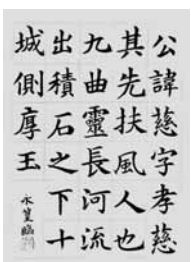 公諱慈字孝慈
其先扶風人也
九曲靈長河流
出積石之下十
城側厚玉
永篁臨